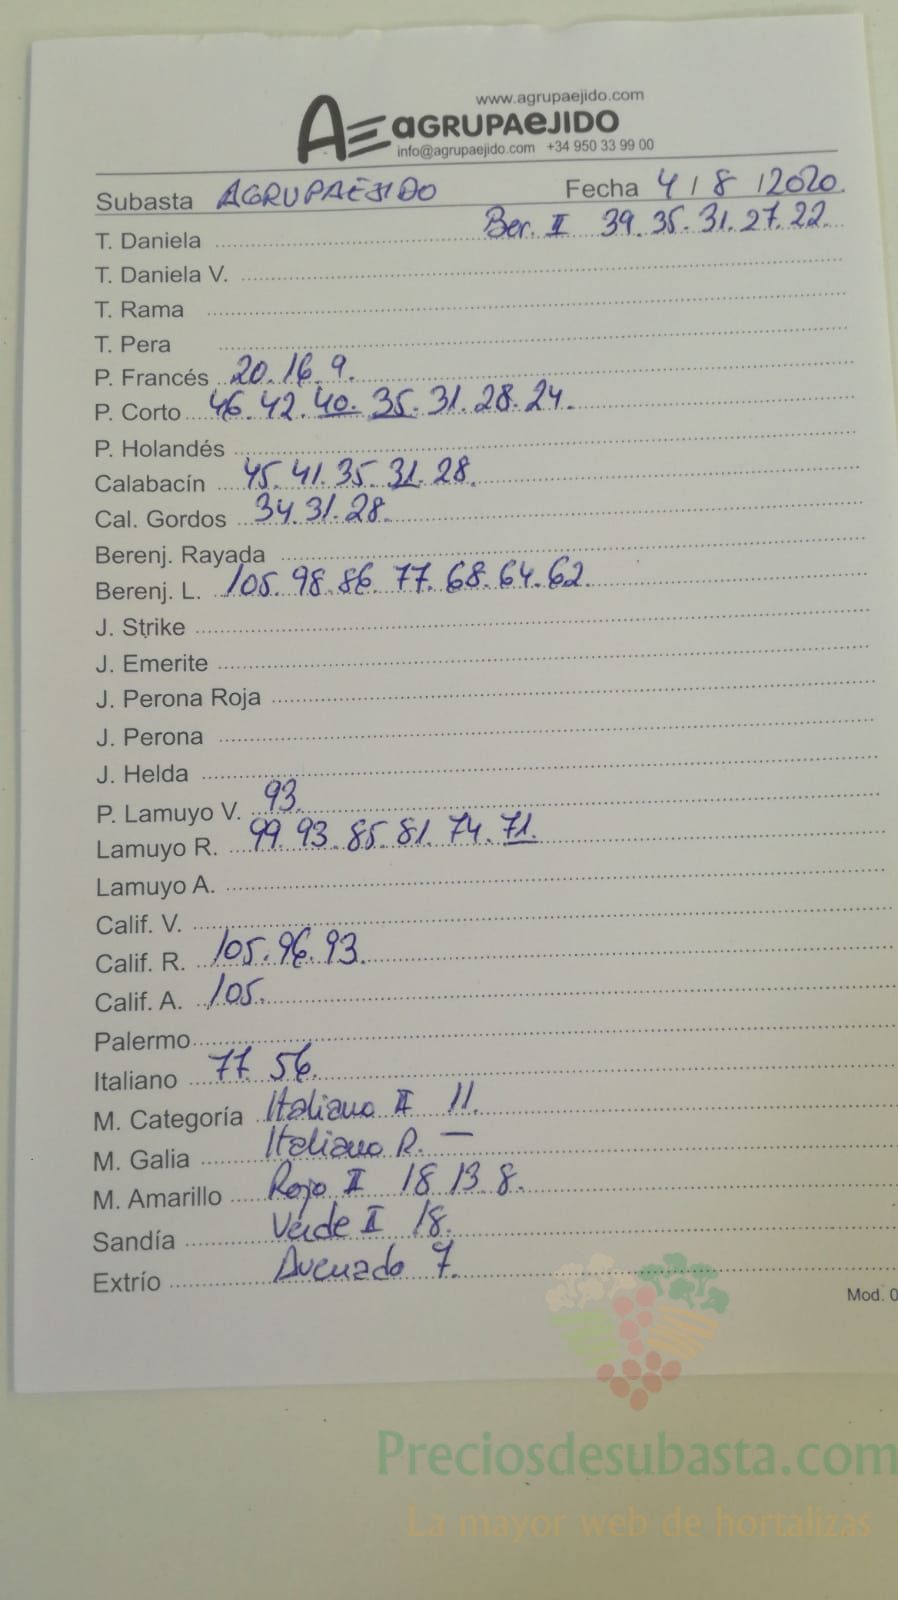 www.agrupaejido.com
AE aGRUPAeJIDO
info@agrupaejido.com +34 950 33 99 00
Subasta AGRUPAEJIDO Fecha 4 / 8 / 2020.
Ber. II 39. 35. 31. 27. 22.
T. Daniela
T. Daniela V.
T. Rama
T. Pera
P. Francés 20. 16. 9.
P. Corto 46. 42. 40. 35. 31. 28. 24.
P. Holandés
Calabacín 45. 41. 35. 31. 28.
Cal. Gordos 34. 31. 28.
Berenj. Rayada
Berenj. L. 105. 98. 86. 77. 68. 64. 62.
J. Strike
J. Emerite
J. Perona Roja
J. Perona
J. Helda
P. Lamuyo V. 93.
Lamuyo R. 99. 93. 85. 81. 74. 71.
Lamuyo A.
Calif. V.
Calif. R. 105. 96. 93.
Calif. A. 105.
Palermo
Italiano 77. 56.
M. Categoría Italiano II 11.
M. Galia Italiano R. —
M. Amarillo Rojo II 18 13 8.
Sandía Verde II 18.
Extrío Avenado 7.
Mod. 0
Preciosdesubasta.com
La mayor web de hortalizas